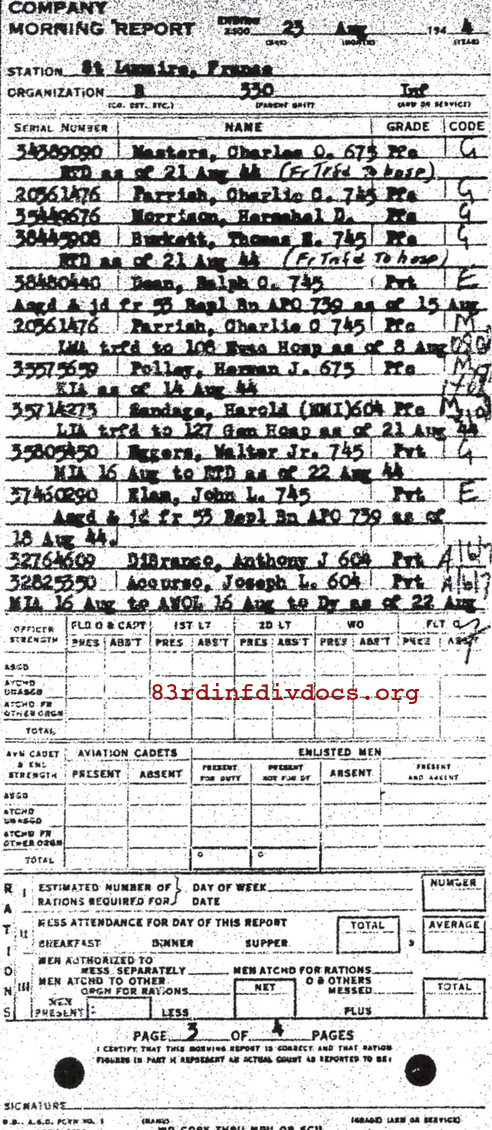 COMPANY
MORNING REPORT ENDING 2400 23 Aug 194 4
(DAY) (MONTH) (YEAR)
STATION St Lunaire, France
ORGANIZATION B 330 Inf
(CO. DET. ETC.) (PARENT UNIT) (ARM OR SERVICE)
SERIAL NUMBER NAME GRADE CODE
34389090 Masters, Charles O. 675 Pfc G
RTD as of 21 Aug 44 (Fr Trfd To hosp)
20361476 Parrish, Charlie G. 745 Pfc G
35449676 Morrison, Herschel D. Pfc G
38445908 Burkett, Thomas E. 745 Pfc G
RTD as of 21 Aug 44 (Fr Trfd To hosp)
38480440 Dean, Ralph O. 745 Pvt E
Asgd & jd fr 53 Repl Bn APO 739 as of 15 Aug
20361476 Parrish, Charlie G 745 Pfc M
LWA trfd to 108 Evac Hosp as of 8 Aug
35575659 Polley, Herman J. 675 Pfc M
KIA as of 14 Aug 44
35714273 Sandage, Harold (NMI) 604 Pfc M
LIA trfd to 127 Gen Hosp as of 21 Aug 44
35805450 Eggers, Walter Jr. 745 Pvt G
MIA 16 Aug to RTD as of 22 Aug 44
37460290 Elam, John L. 745 Pvt E
Asgd & jd fr 53 Repl Bn APO 739 as of
18 Aug 44.
32764609 DiBranco, Anthony J 604 Pvt A
32825350 Accurso, Joseph L. 604 Pvt A
MIA 16 Aug to AWOL 16 Aug to Dy as of 22 Aug
OFFICER STRENGTH FLD O & CAPT 1ST LT 2D LT WO FLT O
PRES ABS'T PRES ABS'T PRES ABS'T PRES ABS'T PRES ABS'T
ASGD
ATCHD UNASGD
ATCHD FR OTHER ORGN
TOTAL
83rdinfdivdocs.org
AVN CADET & ENL STRENGTH AVIATION CADETS ENLISTED MEN
PRESENT ABSENT PRESENT FOR DUTY PRESENT NOT FOR DY ABSENT PRESENT AND ABSENT
ASGD
ATCHD UNASGD
ATCHD FR OTHER ORGN
TOTAL
RATIONS
I ESTIMATED NUMBER OF RATIONS REQUIRED FOR } DAY OF WEEK DATE NUMBER
II MESS ATTENDANCE FOR DAY OF THIS REPORT TOTAL AVERAGE
BREAKFAST DINNER SUPPER
III MEN AUTHORIZED TO MESS SEPARATELY MEN ATCHD FOR RATIONS
MEN ATCHD TO OTHER ORGN FOR RATIONS NET O & OTHERS MESSED TOTAL
MEN PRESENT LESS PLUS
PAGE 3 OF 4 PAGES
I CERTIFY THAT THIS MORNING REPORT IS CORRECT AND THAT RATION
FIGURES IN PART II REPRESENT AN ACTUAL COUNT AS REPORTED TO ME:
SIGNATURE
W.D., A.G.O. FORM NO. 1 (NAME) (GRADE) (ARM OR SERVICE)